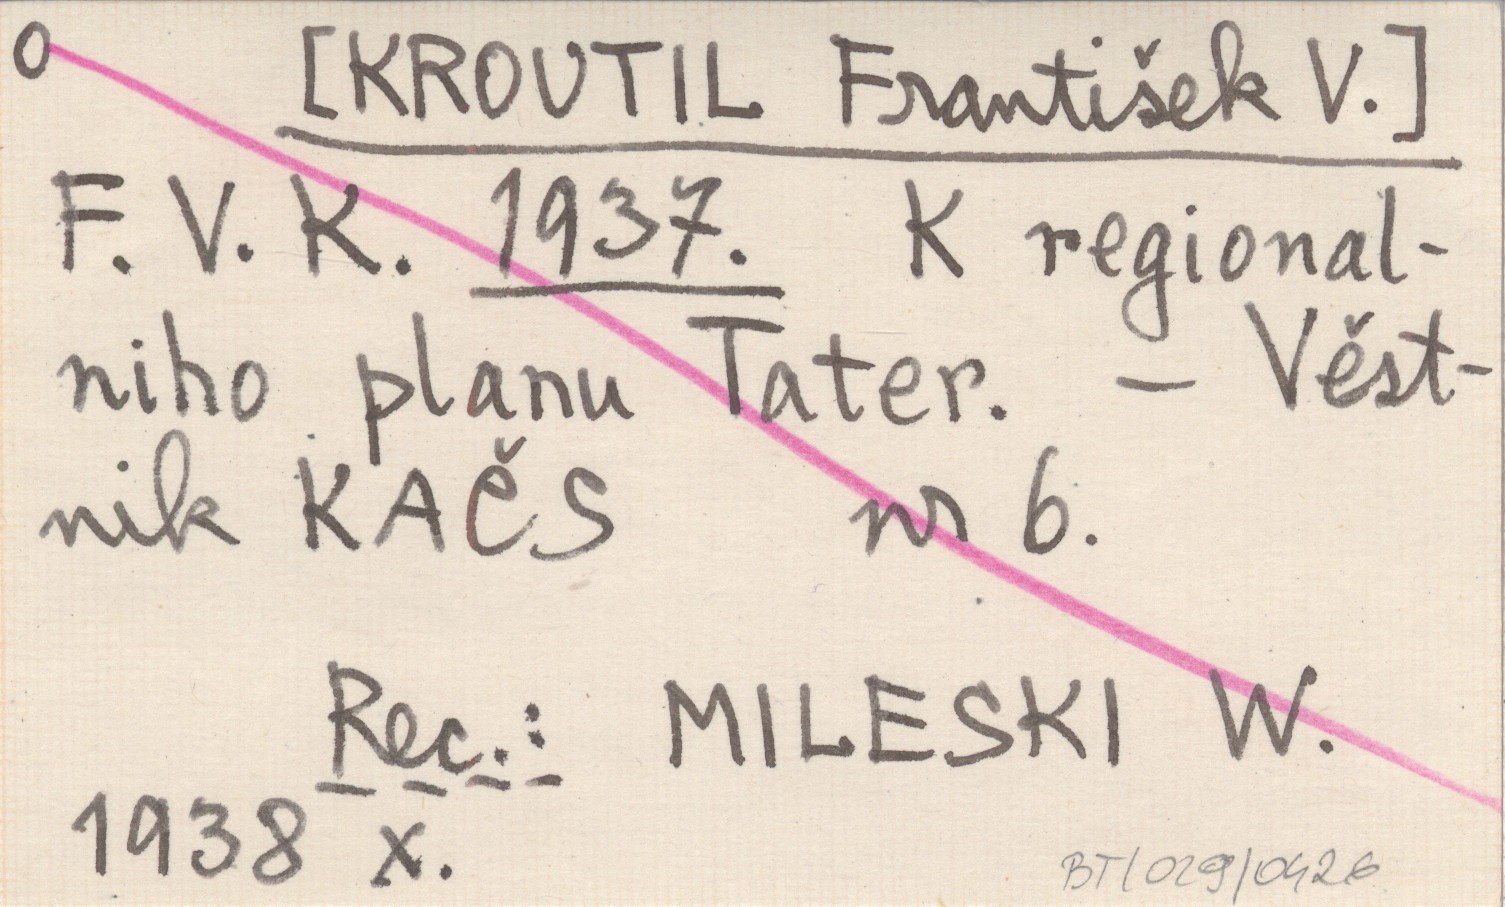 O [KROUTIL František V.]
F. V. K. 1937. K regional-
niho planu Tater. – Věst-
nik KAČS nr 6.
Rec.: MILESKI W.
1938 x.
BT/029/0426